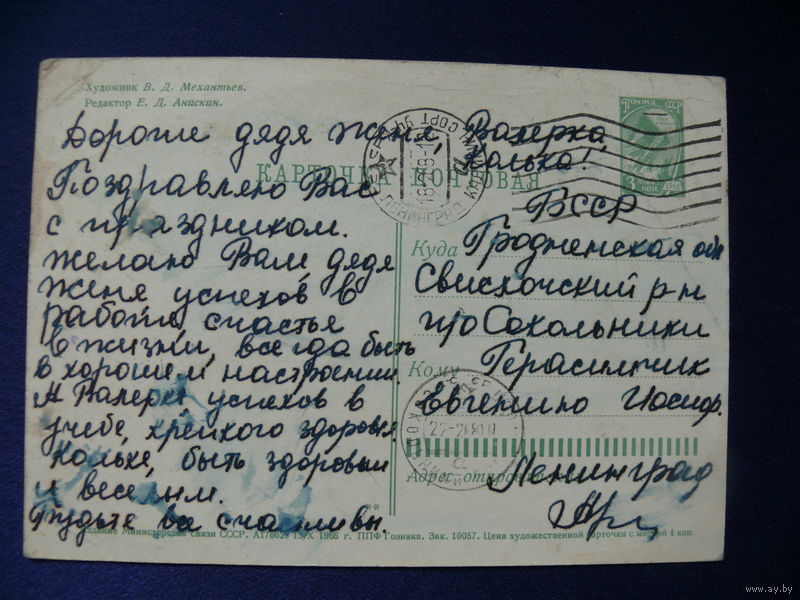 Художник В. Д. Механтьев.
Редактор Е. Д. Анискин.
Дорогие дядя Женя, Валерка,
Колька!
Поздравляю Вас
с праздником.
Желаю Вам, дядя
Женя успехов в
работе, счастье
в жизни, всегда быть
в хорошем настроении.
А Валерке успехов в
учебе, крепкого здоровья
Кольке, быть здоровым
и веселым.
Будьте все счастливы.
ПОЧТА СССР
3 КОП
КАРТОЧКА ПОЧТОВАЯ
ЛЕНИНГРАД
БССР
Куда Гродненская обл
Свислочский р-н
п/о Сокольники
Кому Герасимчик
Евгению Иосиф.
Адрес отправителя
Ленинград
Издание Министерства связи СССР. А17662 15/X 1966 г. ППФ Гознака. Зак. 10057. Цена художественной карточки с маркой 4 коп.